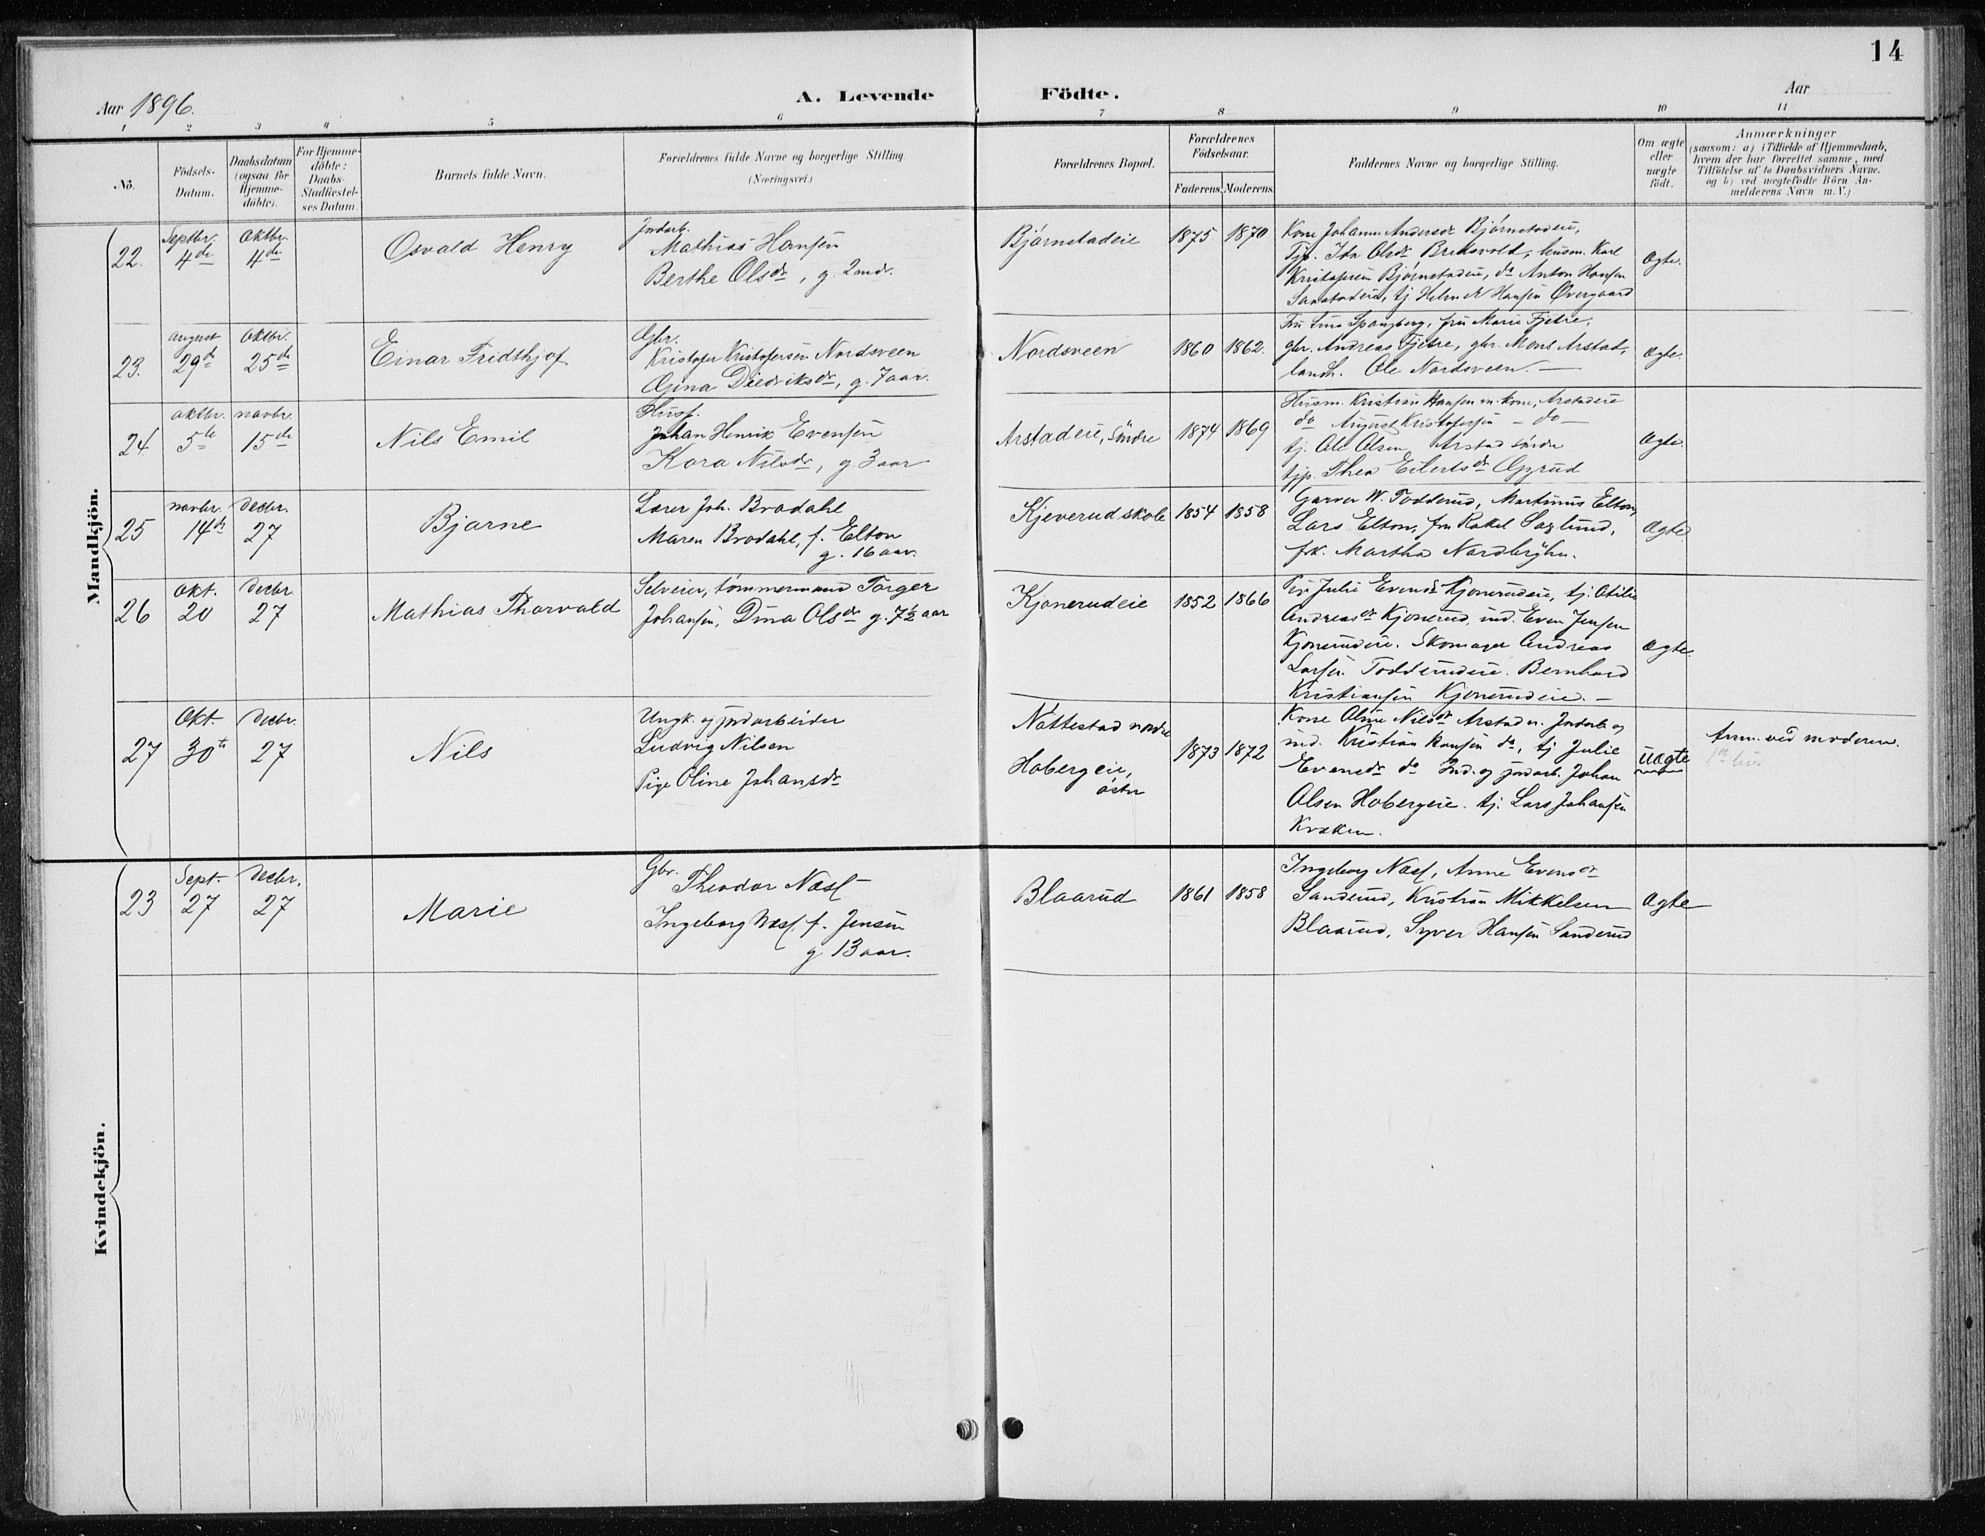 14
Aar 1896.
A. Levende Födte.
Aar
1 2 3 4 5 6 7 8 9 10 11
No.
Födsels-Datum.
Daabsdatum (ogsaa for Hjemme-döbte).
For Hjemme-döbte: Daabs-Stadfæstel-ses Datum.
Barnets fulde Navn.
Forældrenes fulde Navne og borgerlige Stilling.
(Næringsvei.)
Forældrenes Bopæl.
Forældrenes Födselsaar.
Faderens. Moderens.
Faddernes Navne og borgerlige Stilling.
Om ægte eller uægte födt.
Anmærkninger
(saasom: a) i Tilfælde af Hjemmedaab,
hvem der har forrettet samme, med
Tilföielse af to Daabsvidners Navne.
og b) ved uægtefödte Börn An-
melderens Navn m. V.)
Mandkjön.
22. Septbr. 4de
Oktbr. 4de
Osvald Henry
Jordarb.
Mathias Hansen
Berthe Olsdr, g. 2 mdr.
Bjørnstadeie
1875 1870
Kone Johanne Andersdr Bjørnstadeie,
Pige Ida Olsdr Breksvold, husm. Karl
Kristofersen Bjørnstadeie, do Anton Hansen
Hansen Øvergaard
Ægte.
23. august 29de
Oktbr. 25de
Einar Fridthjof
Gbr.
Kristofer Kristofersen Nordsveen
Agina Diedriksdr, g. 7 aar.
Nordsveen
1860 1862.
Fru Lina Spangberg, fru Marie Fjetre,
gbr. Andreas Fjetre, gbr. Mons Arstad,
Ole Nordsveen. —
Ægte.
24 oktbr. 5te
novbr. 15de
Nils Emil
Husf.
Johan Henrik Evensen
Kora Nilsdr, g. 3 aar
Arstadeie, Søndre
1874 1869
Husm. Kristian Hansen m. kone, Arstadeie
do August Kristofersen — do —
tj. Ole Olsen Arstad søndre
tjp. Thea Eilertsdr Opsrud
Ægte.
25 novbr. 14de
Decbr. 27
Bjarne
Lærer Joh. Brodahl
Maren Brodahl, f. Elton
g. 16 aar.
Kjeverud skole
1854 1858
Garver W. Todderud, Martinus Elton,
Lars Elton, fru Rakel Saglund,
frk. Martha Nordberghn.
Ægte
26 Okt. 20
Decbr 27
Mathias Thorvald
Selveier, tømmermand Torger
Johansen, Dina Olsdr g. 7½ aar
Kjoneru­deie
1852 1866
Julie Evensdr Kjonerudeie, tj. Otilie
Andreasdr Kjonerud, ind. Even Jensen
Kjonerudeie. Skomager Andreas
Larsen Todderudeie. Bernhard
Kristiansen Kjonerudeie. —
Ægte.
27 Okt. 30te
Decbr. 27
Nils
Ungk. og jordarbeider
Ludvig Nilsen
Pige Oline Johansdr
Nøttestad nordre
Hobergeie, østre
1873 1872
Kone Oline Nilsdr Arstad n. Jordarb. og
ind. Kristian Hansen do, tj Julie
Evensdr do Ind. og jordarb. Johan
Olsen Hobergeie. tj. Lars Johansen
Kræken.
Uægte
Anm. ved moderen.
Kvindekjön.
23 Sept. 27
Decbr. 27
Marie
Gbr. Theodor Næss
Ingeborg Næss, f. Jensen
g. 13 aar.
Blaarud
1861 1858
Ingeborg Næss, Anne Evensdr
Sanderud, Kristian Mikkelsen
Blaarud, Syver Hansen Sanderud
Ægte